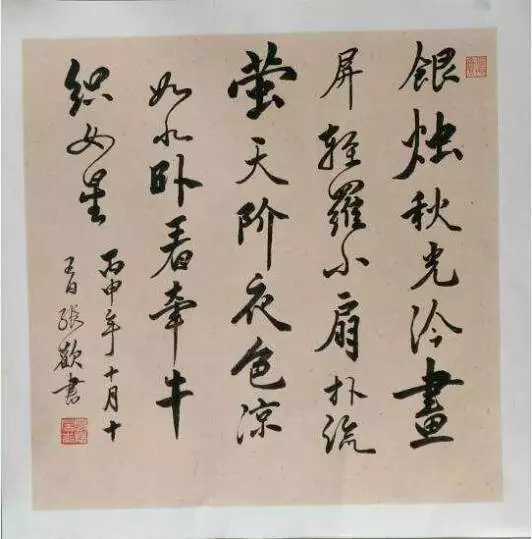 银烛秋光冷畫
屏轻羅小扇扑流
萤天阶夜色凉
如水卧看牵牛
织女星
丙申年十月十
五日張歡書